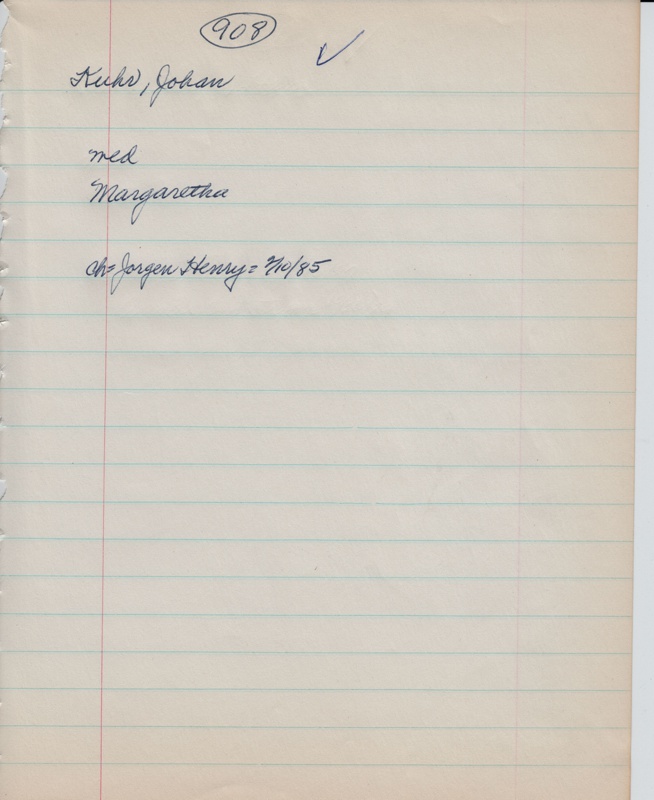 908
Kuhr, Johan
med
Margaretha
ch= Jorgen Henry = /10/85